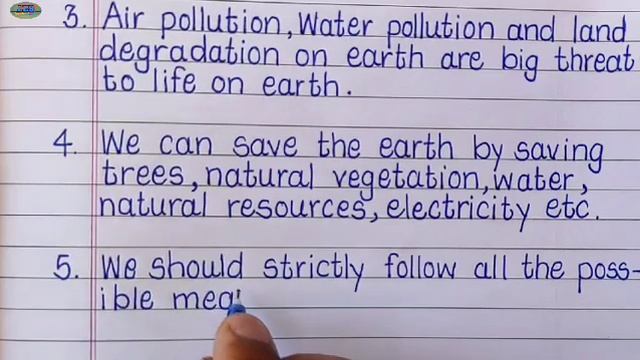 3. Air pollution, Water pollution and land
degradation on earth are big threat
to life on earth.
4. We can save the earth by saving
trees, natural vegetation, water,
natural resources, electricity etc.
5. We should strictly follow all the poss-
ible mea